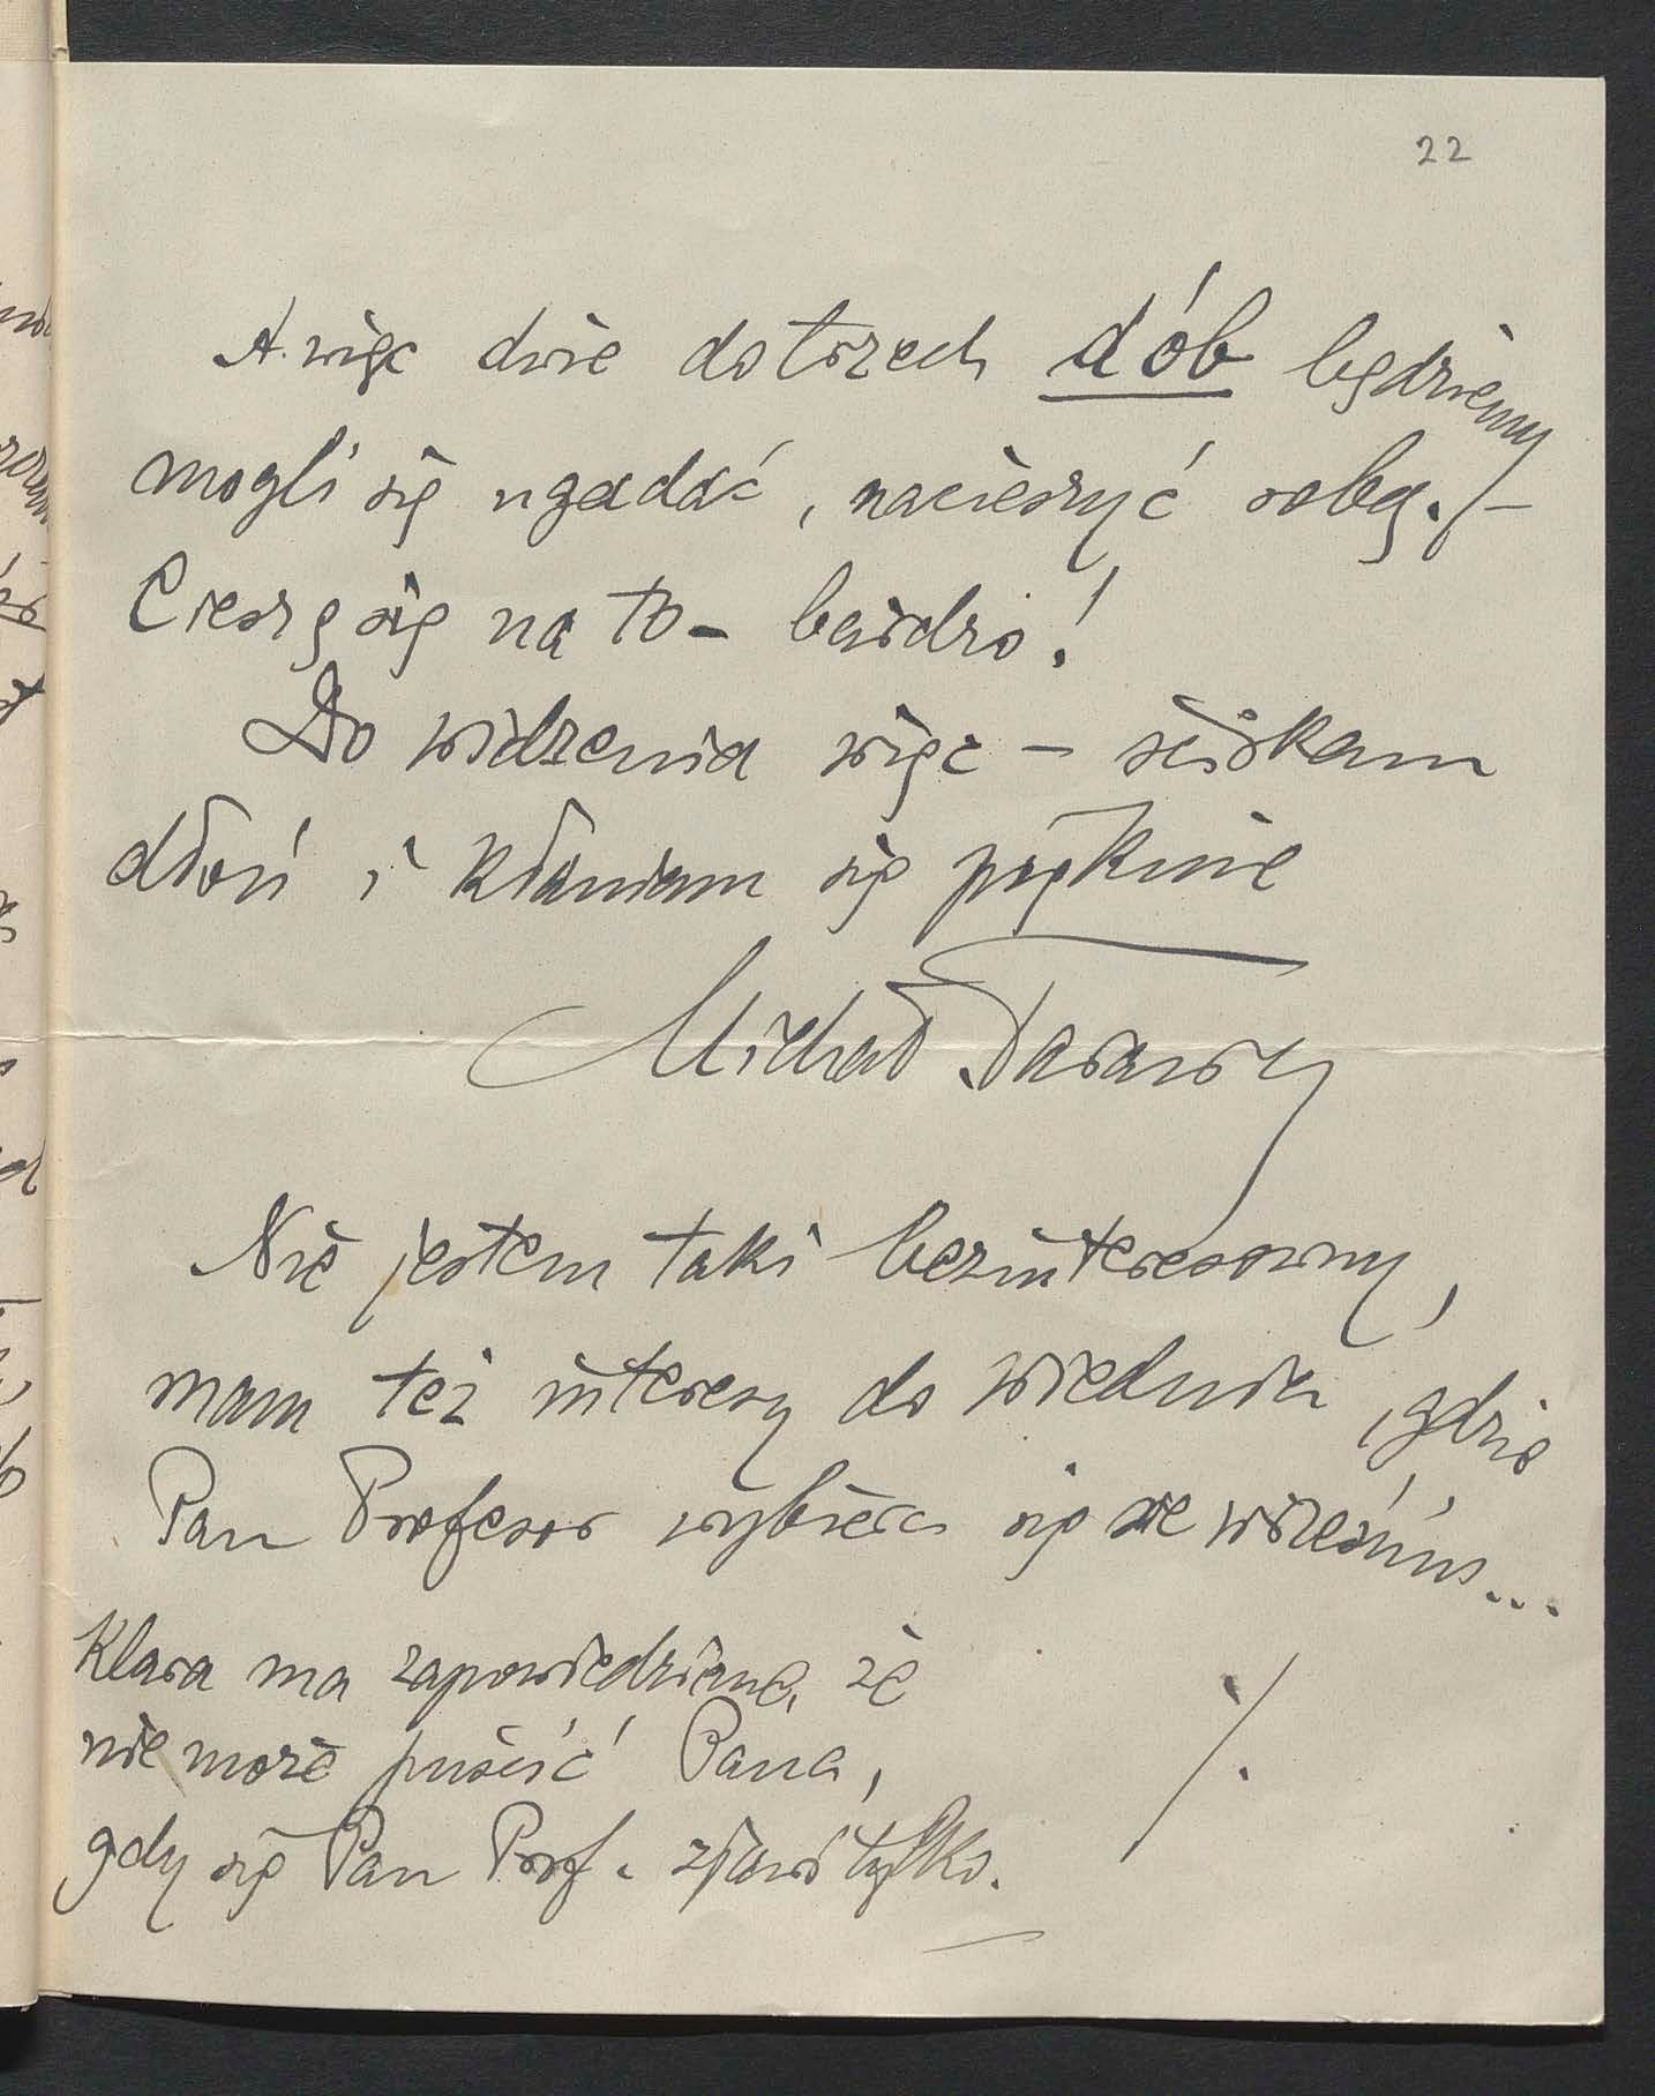 22
A więc dwie do trzech dób będziemy
mogli się ugadać, nacieszyć sobą. –
Cieszę się na to – bardzo!
Do widzenia więc – ściskam
dłoń i kłaniam się pięknie
Michał
Nie jestem taki bezinteresowny,
mam też interesy do Wiednia, gdzie
Pan Profesor wybiera się we wrześniu...
Klara ma zapowiedziane, że
nie może puścić Pana,
gdy się Pan Prof. zjawi tylko.